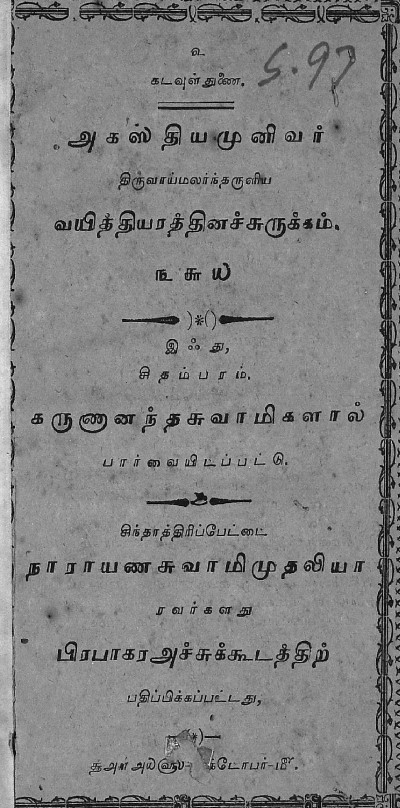 உ
கடவுள் துணை.
S. 97
அகஸ்தியமுனிவர்
திருவாய்மலர்ந்தருளிய
வயித்தியரத்தினச்சுருக்கம்.
௩ ௬ ௰
இஃது,
சிதம்பரம்.
கருணானந்தசுவாமிகளால்
பார்வையிடப்பட்டு.
சிந்தாத்திரிப்பேட்டை
நாராயணசுவாமிமுதலியா
ரவர்களது
பிரபாகரஅச்சுக்கூடத்திற்
பதிப்பிக்கப்பட்டது,
க்டோபர்-௴.